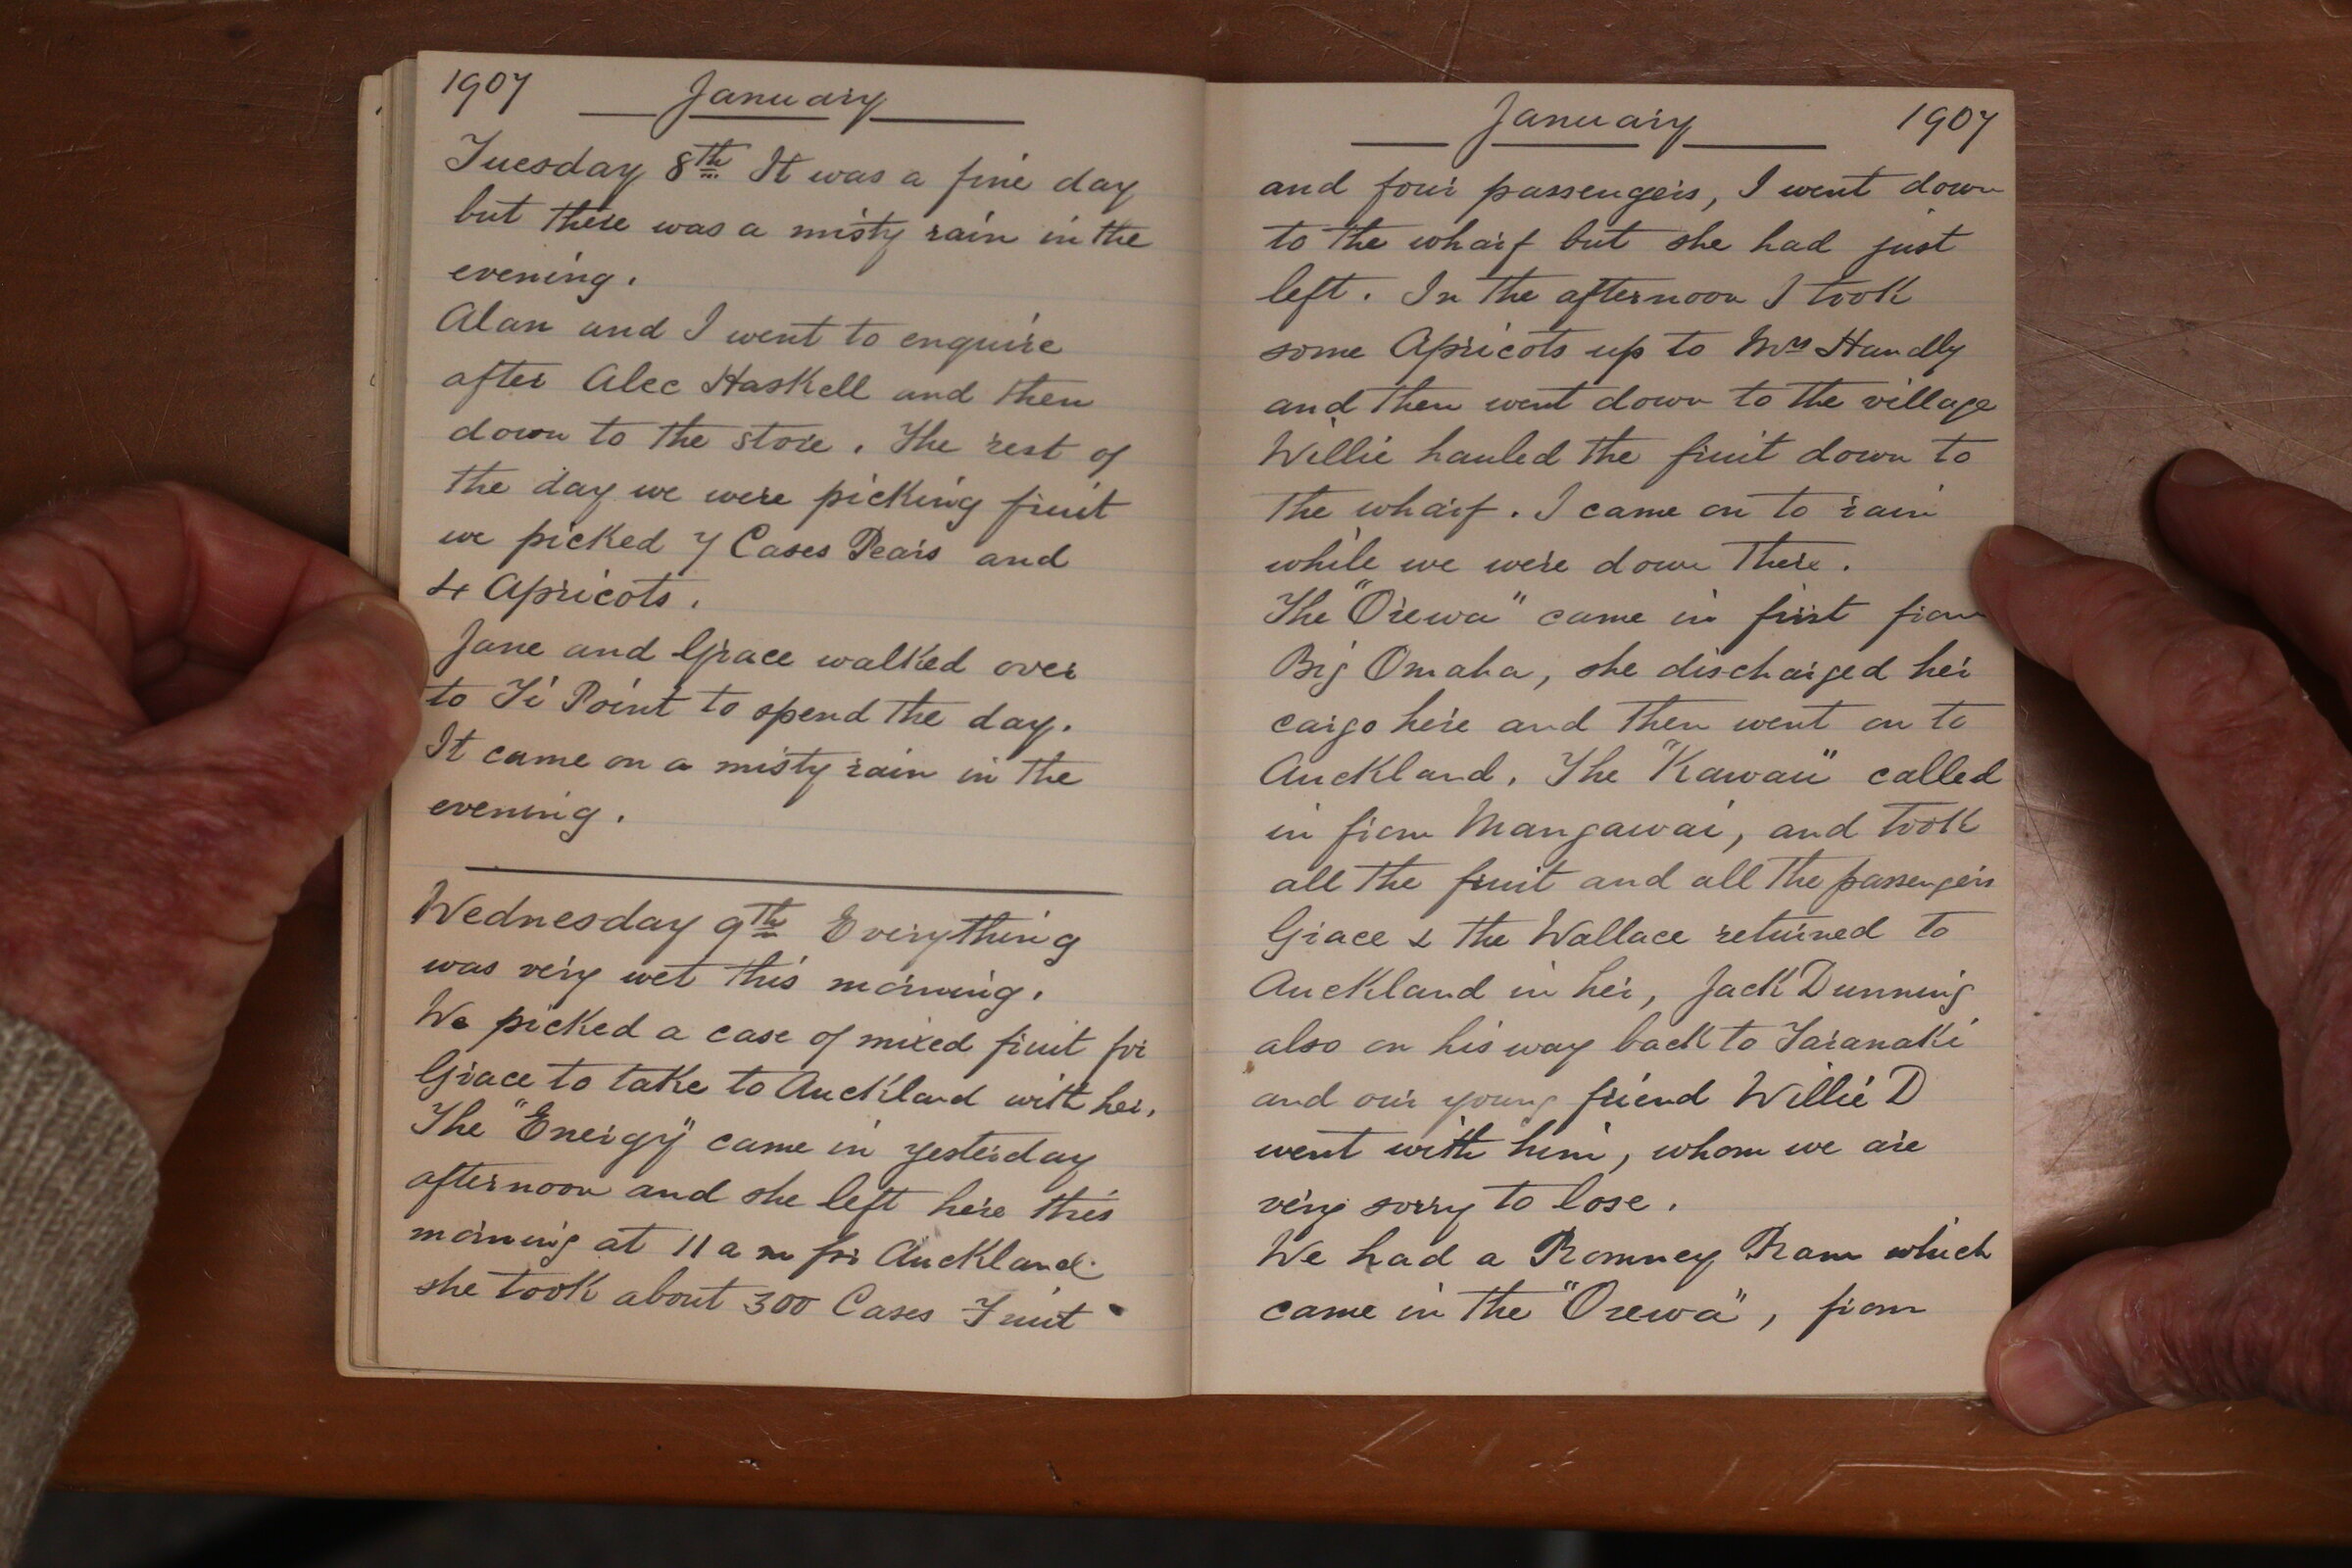 1907 January
Tuesday 8th It was a fine day
but there was a misty rain in the
evening.
Alan and I went to enquire
after Alec Haskell and then
down to the store. The rest of
the day we were picking fruit
we picked 7 Cases Pears and
4 Apricots.
Jane and Grace walked over
to Ti Point to spend the day.
It came on a misty rain in the
evening.
Wednesday 9th Everything
was very wet this morning.
We picked a case of mixed fruit for
Grace to take to Auckland with her.
The "Energy" came in yesterday
afternoon and she left here this
morning at 11 a m for Auckland.
she took about 300 Cases Fruit
January 1907
and four passengers, I went down
to the wharf but she had just
left. In the afternoon I took
some Apricots up to Mrs Handly
and then went down to the village
Willie hauled the fruit down to
the wharf. I came on to rain
while we were down there.
The "Orewa" came in first from
Big Omaha, she discharged her
cargo here and then went on to
Auckland. The "Kawau" called
in from Mangawai, and took
all the fruit and all the passengers
Grace & the Wallace returned to
Auckland in her, Jack Dunning
also on his way back to Taranaki
and our young friend Willie D
went with him, whom we are
very sorry to lose.
We had a Romney Ram which
came in the "Orewa", from